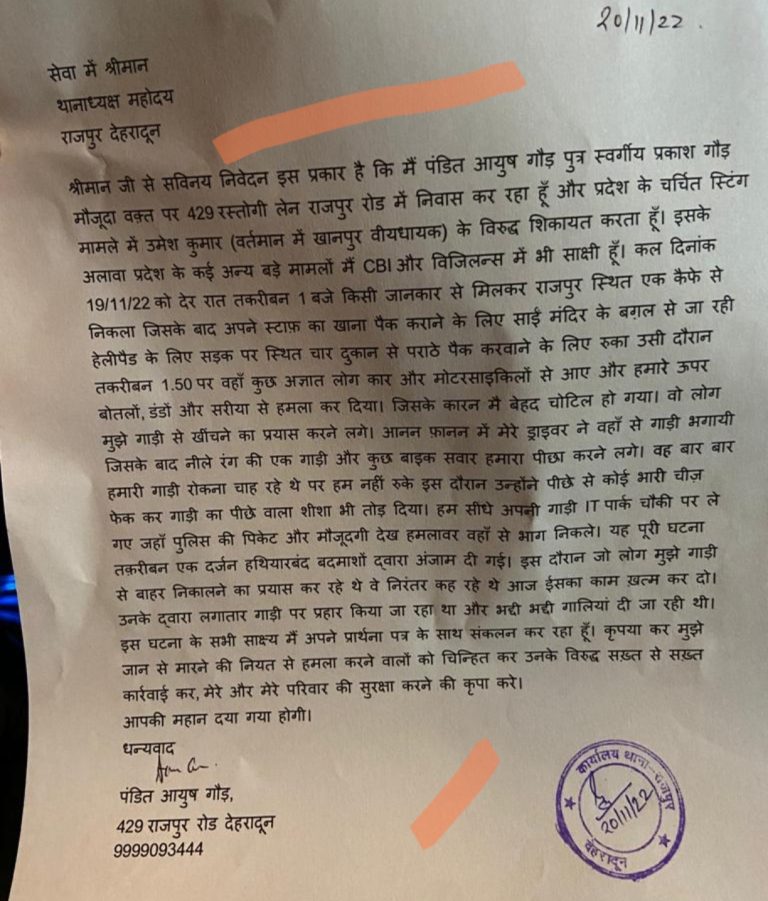 20/11/22.
सेवा में श्रीमान
थानाध्यक्ष महोदय
राजपुर देहरादून
श्रीमान जी से सविनय निवेदन इस प्रकार है कि मैं पंडित आयुष गौड़ पुत्र स्वर्गीय प्रकाश गौड़
मौजूदा वक़्त पर 429 रस्तोगी लेन राजपुर रोड में निवास कर रहा हूँ और प्रदेश के चर्चित स्टिंग
मामले में उमेश कुमार (वर्तमान में खानपुर वीयधायक) के विरुद्ध शिकायत करता हूँ। इसके
अलावा प्रदेश के कई अन्य बड़े मामलों मैं CBI और विजिलन्स में भी साक्षी हूँ। कल दिनांक
19/11/22 को देर रात तकरीबन 1 बजे किसी जानकार से मिलकर राजपुर स्थित एक कैफे से
निकला जिसके बाद अपने स्टाफ़ का खाना पैक कराने के लिए साईं मंदिर के बग़ल से जा रही
हेलीपैड के लिए सड़क पर स्थित चार दुकान से पराठे पैक करवाने के लिए रुका उसी दौरान
तकरीबन 1.50 पर वहाँ कुछ अज्ञात लोग कार और मोटरसाइकिलों से आए और हमारे ऊपर
बोतलों, डंडों और सरीया से हमला कर दिया। जिसके कारन मै बेहद चोटिल हो गया। वो लोग
मुझे गाड़ी से खींचने का प्रयास करने लगे। आनन फ़ानन में मेरे ड्राइवर ने वहाँ से गाड़ी भगायी
जिसके बाद नीले रंग की एक गाड़ी और कुछ बाइक सवार हमारा पीछा करने लगे। वह बार बार
हमारी गाड़ी रोकना चाह रहे थे पर हम नहीं रुके इस दौरान उन्होंने पीछे से कोई भारी चीज़
फेक कर गाड़ी का पीछे वाला शीशा भी तोड़ दिया। हम सीधे अपनी गाड़ी IT पार्क चौकी पर ले
गए जहाँ पुलिस की पिकेट और मौजूदगी देख हमलावर वहाँ से भाग निकले। यह पूरी घटना
तक़रीबन एक दर्जन हथियारबंद बदमाशों द्वारा अंजाम दी गई। इस दौरान जो लोग मुझे गाड़ी
से बाहर निकालने का प्रयास कर रहे थे वे निरंतर कह रहे थे आज ईसका काम ख़त्म कर दो।
उनके द्वारा लगातार गाड़ी पर प्रहार किया जा रहा था और भद्दी भद्दी गालियां दी जा रही थी।
इस घटना के सभी साक्ष्य मैं अपने प्रार्थना पत्र के साथ संकलन कर रहा हूँ। कृपया कर मुझे
जान से मारने की नियत से हमला करने वालों को चिन्हित कर उनके विरुद्ध सख़्त से सख़्त
कार्रवाई कर, मेरे और मेरे परिवार की सुरक्षा करने की कृपा करे।
आपकी महान दया गया होगी।
धन्यवाद
पंडित आयुष गौड़,
429 राजपुर रोड देहरादून
9999093444
कार्यालय थाना-राजपुर
20/11/22
देहरादून